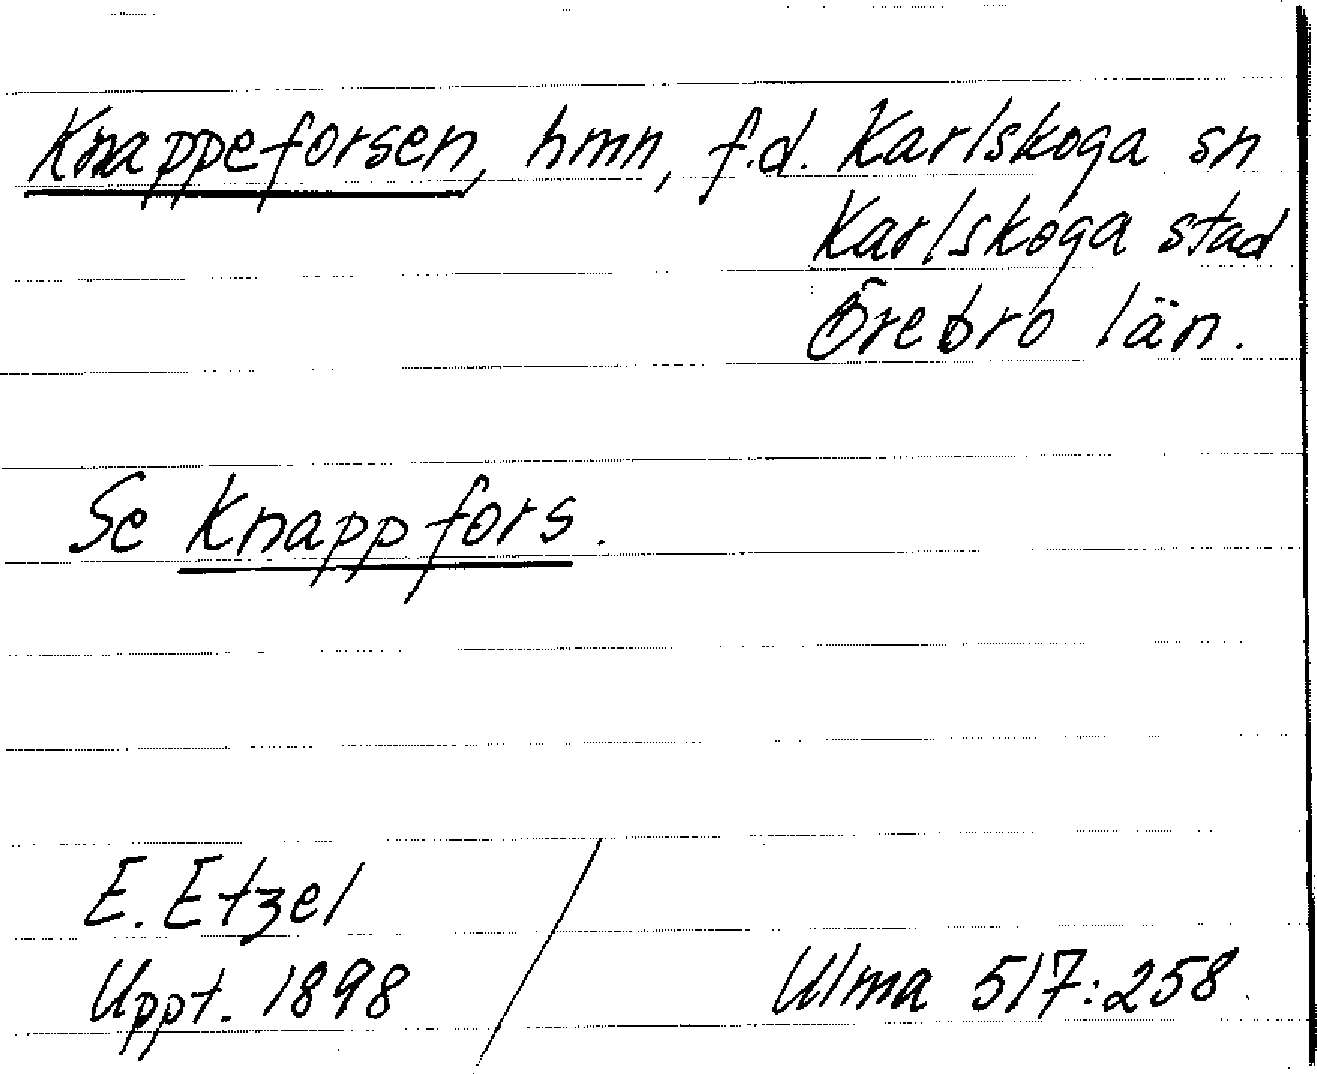 Knappeforsen, hmn, f.d. Karlskoga sn
Karlskoga stad
Örebro län.
Se Knappfors.
E. Etzel
Uppt. 1898
Ulma 517:258.